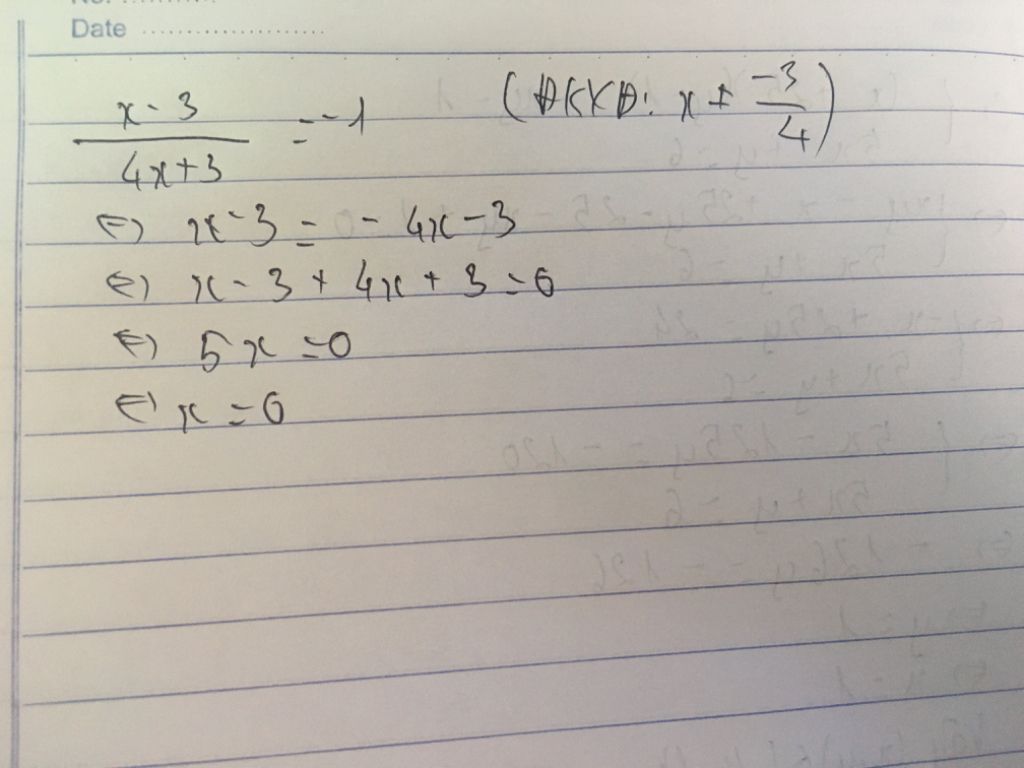 Date
x - 3 / 4x + 3 = -1 (ĐKXĐ: x ≠ -3/4)
⇔ x - 3 = - 4x - 3
⇔ x - 3 + 4x + 3 = 0
⇔ 5x = 0
⇔ x = 0